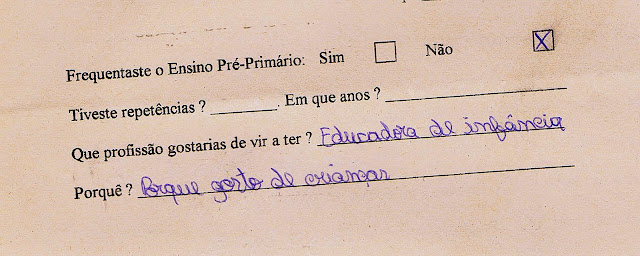 Frequentaste o Ensino Pré-Primário: Sim ☐ Não ☒
Tiveste repetências ? ________. Em que anos ? ____________________
Que profissão gostarias de vir a ter ? Educadora de infância
Porquê ? Porque gosto de crianças